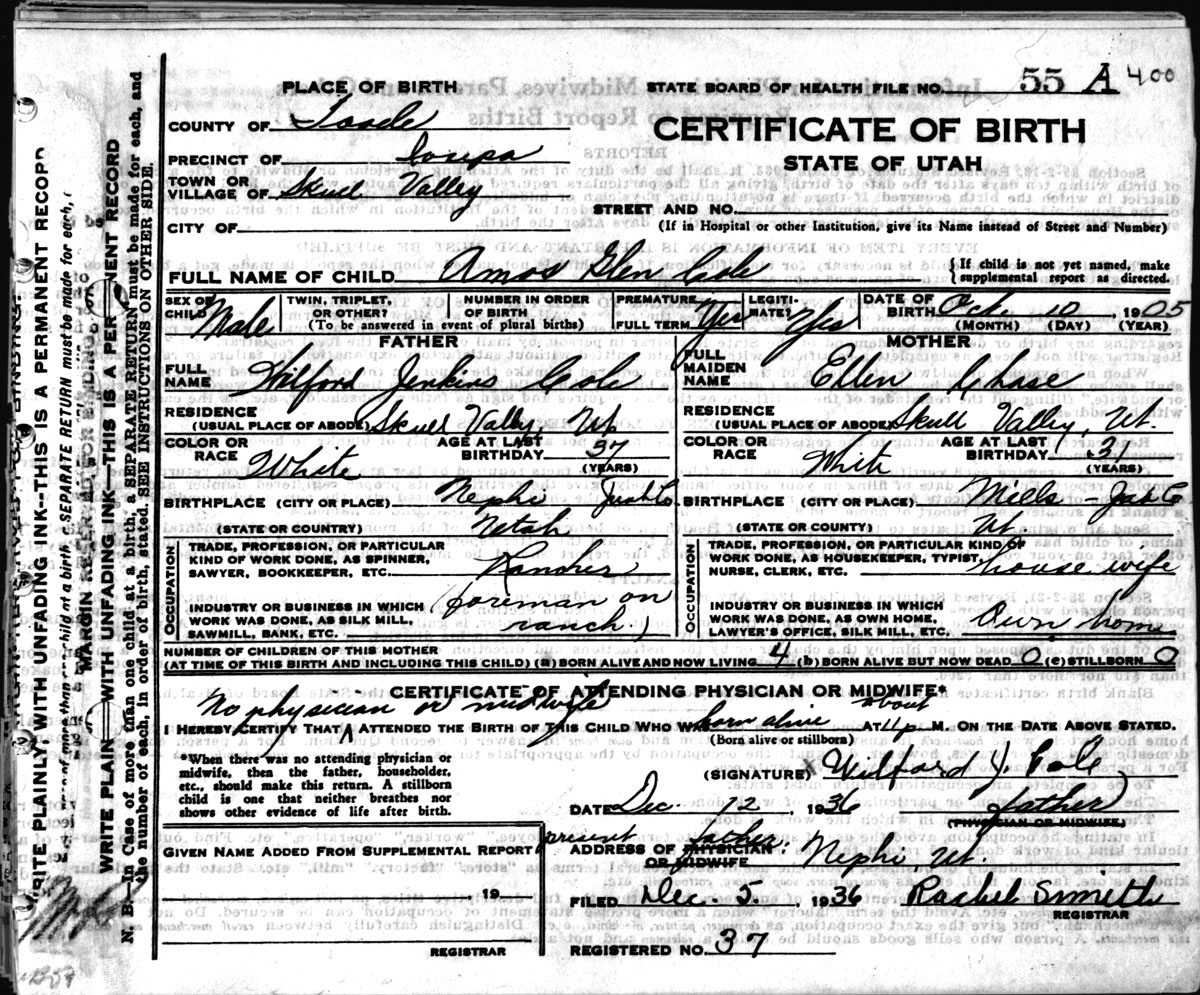 PLACE OF BIRTH
STATE BOARD OF HEALTH FILE NO. 55 A 400
COUNTY OF Tooele
CERTIFICATE OF BIRTH
PRECINCT OF Iosepa
STATE OF UTAH
TOWN OR
VILLAGE OF Skull Valley
STREET AND NO.
CITY OF
(If in Hospital or other Institution, give its Name instead of Street and Number)
FULL NAME OF CHILD Amos Glen Cole
{If child is not yet named, make
supplemental report as directed.
SEX OF
CHILD Male
TWIN, TRIPLET,
OR OTHER?
NUMBER IN ORDER
OF BIRTH
(To be answered in event of plural births)
PREMATURE
FULL TERM Yes
LEGITI-
MATE? Yes
DATE OF
BIRTH Oct. 10, 1905
(MONTH) (DAY) (YEAR)
FATHER
FULL
NAME Wilford Jenkins Cole
RESIDENCE
(USUAL PLACE OF ABODE) Skull Valley, Ut
COLOR OR
RACE White
AGE AT LAST
BIRTHDAY 37
(YEARS)
BIRTHPLACE (CITY OR PLACE) Nephi Juab Co
(STATE OR COUNTRY) Utah
OCCUPATION
TRADE, PROFESSION, OR PARTICULAR
KIND OF WORK DONE, AS SPINNER,
SAWYER, BOOKKEEPER, ETC. Rancher
INDUSTRY OR BUSINESS IN WHICH
WORK WAS DONE, AS SILK MILL,
SAWMILL, BANK, ETC. (foreman on
ranch)
MOTHER
FULL
MAIDEN
NAME Ellen Chase
RESIDENCE
(USUAL PLACE OF ABODE) Skull Valley, Ut.
COLOR OR
RACE White
AGE AT LAST
BIRTHDAY 31
(YEARS)
BIRTHPLACE (CITY OR PLACE) Mills - Juab Co
(STATE OR COUNTY) Ut.
OCCUPATION
TRADE, PROFESSION, OR PARTICULAR KIND OF
WORK DONE, AS HOUSEKEEPER, TYPIST,
NURSE, CLERK, ETC. house wife
INDUSTRY OR BUSINESS IN WHICH
WORK WAS DONE, AS OWN HOME,
LAWYER'S OFFICE, SILK MILL, ETC. Own home
NUMBER OF CHILDREN OF THIS MOTHER
(AT TIME OF THIS BIRTH AND INCLUDING THIS CHILD) (a) BORN ALIVE AND NOW LIVING 4 (b) BORN ALIVE BUT NOW DEAD 0 (c) STILLBORN 0
CERTIFICATE OF ATTENDING PHYSICIAN OR MIDWIFE*
No physician or midwife about
I HEREBY CERTIFY THAT ATTENDED THE BIRTH OF THIS CHILD WHO WAS born alive AT 11 p M. ON THE DATE ABOVE STATED.
(Born alive or stillborn)
*When there was no attending physician or
midwife, then the father, householder,
etc., should make this return. A stillborn
child is one that neither breathes nor
shows other evidence of life after birth.
(SIGNATURE) Wilford J. Cole
DATE Dec. 12, 1936 father)
(PHYSICIAN OR MIDWIFE)
present father:
ADDRESS OF PHYSICIAN
OR MIDWIFE Nephi Ut.
GIVEN NAME ADDED FROM SUPPLEMENTAL REPORT
19
REGISTRAR
FILED Dec. 5, 1936 Rachel Smith
REGISTRAR
REGISTERED NO. 37
WRITE PLAINLY, WITH UNFADING INK--THIS IS A PERMANENT RECORD
MARGIN RESERVED FOR BINDING
WRITE PLAIN WITH UNFADING INK—THIS IS A PER MENT RECORD
N. B.—in Case of more than one child at a birth, a SEPARATE RETURN must be made for each, and
the number of each, in order of birth, stated. SEE INSTRUCTIONS ON OTHER SIDE.